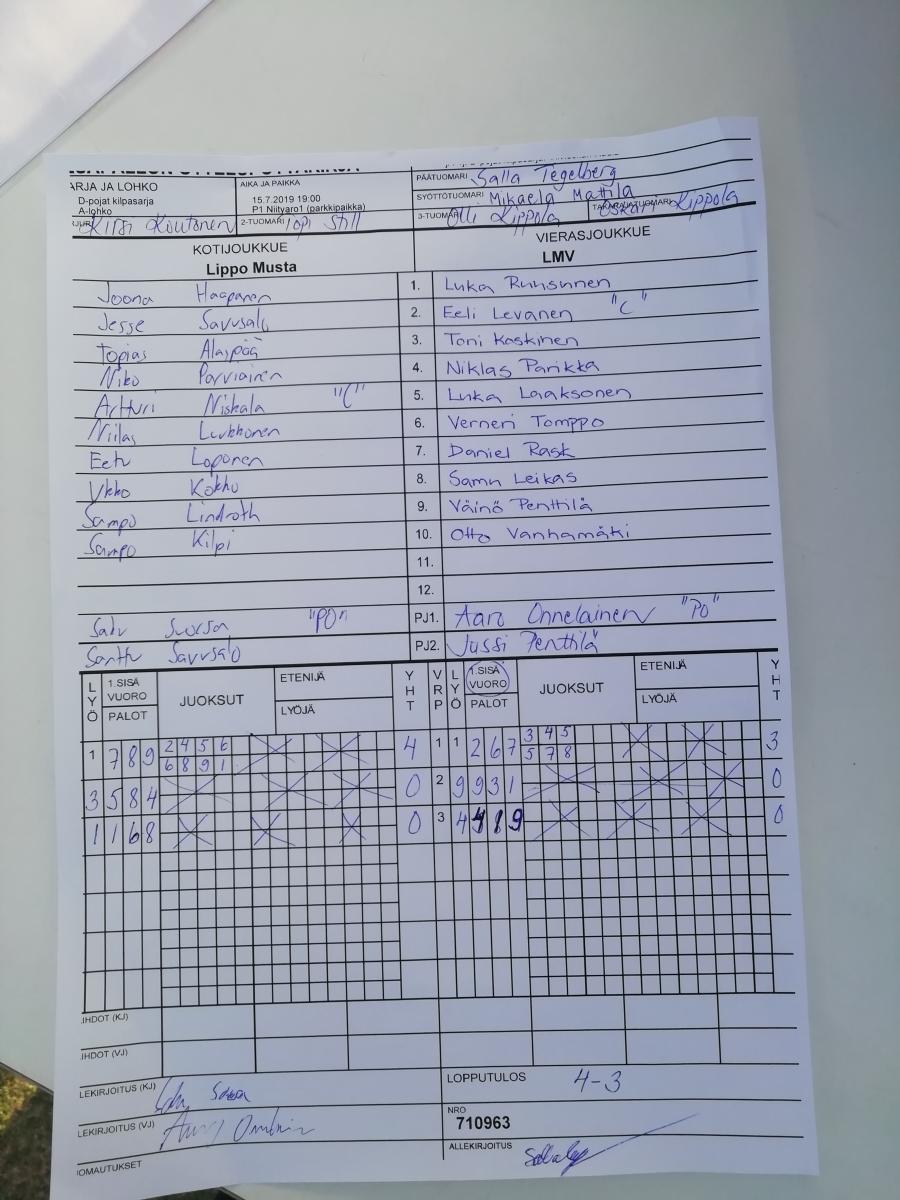 ARJA JA LOHKO
D-pojat kilpasarja
A-lohko
AIKA JA PAIKKA
15.7.2019 19:00
P1 Niityaro1 (parkkipaikka)
PÄÄTUOMARI Salla Tegelberg
SYÖTTÖTUOMARI Mikaela Mattila
Kirsi Koutonen 2-TUOMARI Topi Still 3-TUOMARI Olli Kippola TAKARAJATUOMARI Oskari Kippola
KOTIJOUKKUE VIERASJOUKKUE
Lippo Musta LMV
Joona Haapanen 1. Luka Ruususnen
Jesse Savusalo 2. Eeli Levanen "C"
Topias Alaspää 3. Toni Koskinen
Niko Parviainen 4. Niklas Parikka
Artturi Niskala "C" 5. Luka Laaksonen
Niilas Luukkonen 6. Verneri Tomppo
Eetu Loponen 7. Daniel Rask
Ukko Kokko 8. Samu Leikas
Sampo Lindroth 9. Väinö Penttilä
Sampo Kilpi 10. Otto Vanhamäki
11.
12.
Satu Suorsa "PO" PJ1. Aaro Onnelainen "PO"
Santtu Savusalo PJ2. Jussi Penttilä
LYÖ 1.SISÄ VUORO PALOT JUOKSUT ETENIJÄ LYÖJÄ YHT VRP LYÖ 1.SISÄ VUORO PALOT JUOKSUT ETENIJÄ LYÖJÄ YHT
1 7 8 9 2 4 5 6 4 1 1 2 6 7 3 4 5 3
6 8 9 1 5 7 8
3 5 8 4 0 2 9 9 3 1 0
1 1 6 8 0 3 4 1 8 9 0
.IHDOT (KJ)
.IHDOT (VJ)
LEKIRJOITUS (KJ)
LOPPUTULOS 4-3
LEKIRJOITUS (VJ)
NRO
710963
OMAUTUKSET
ALLEKIRJOITUS